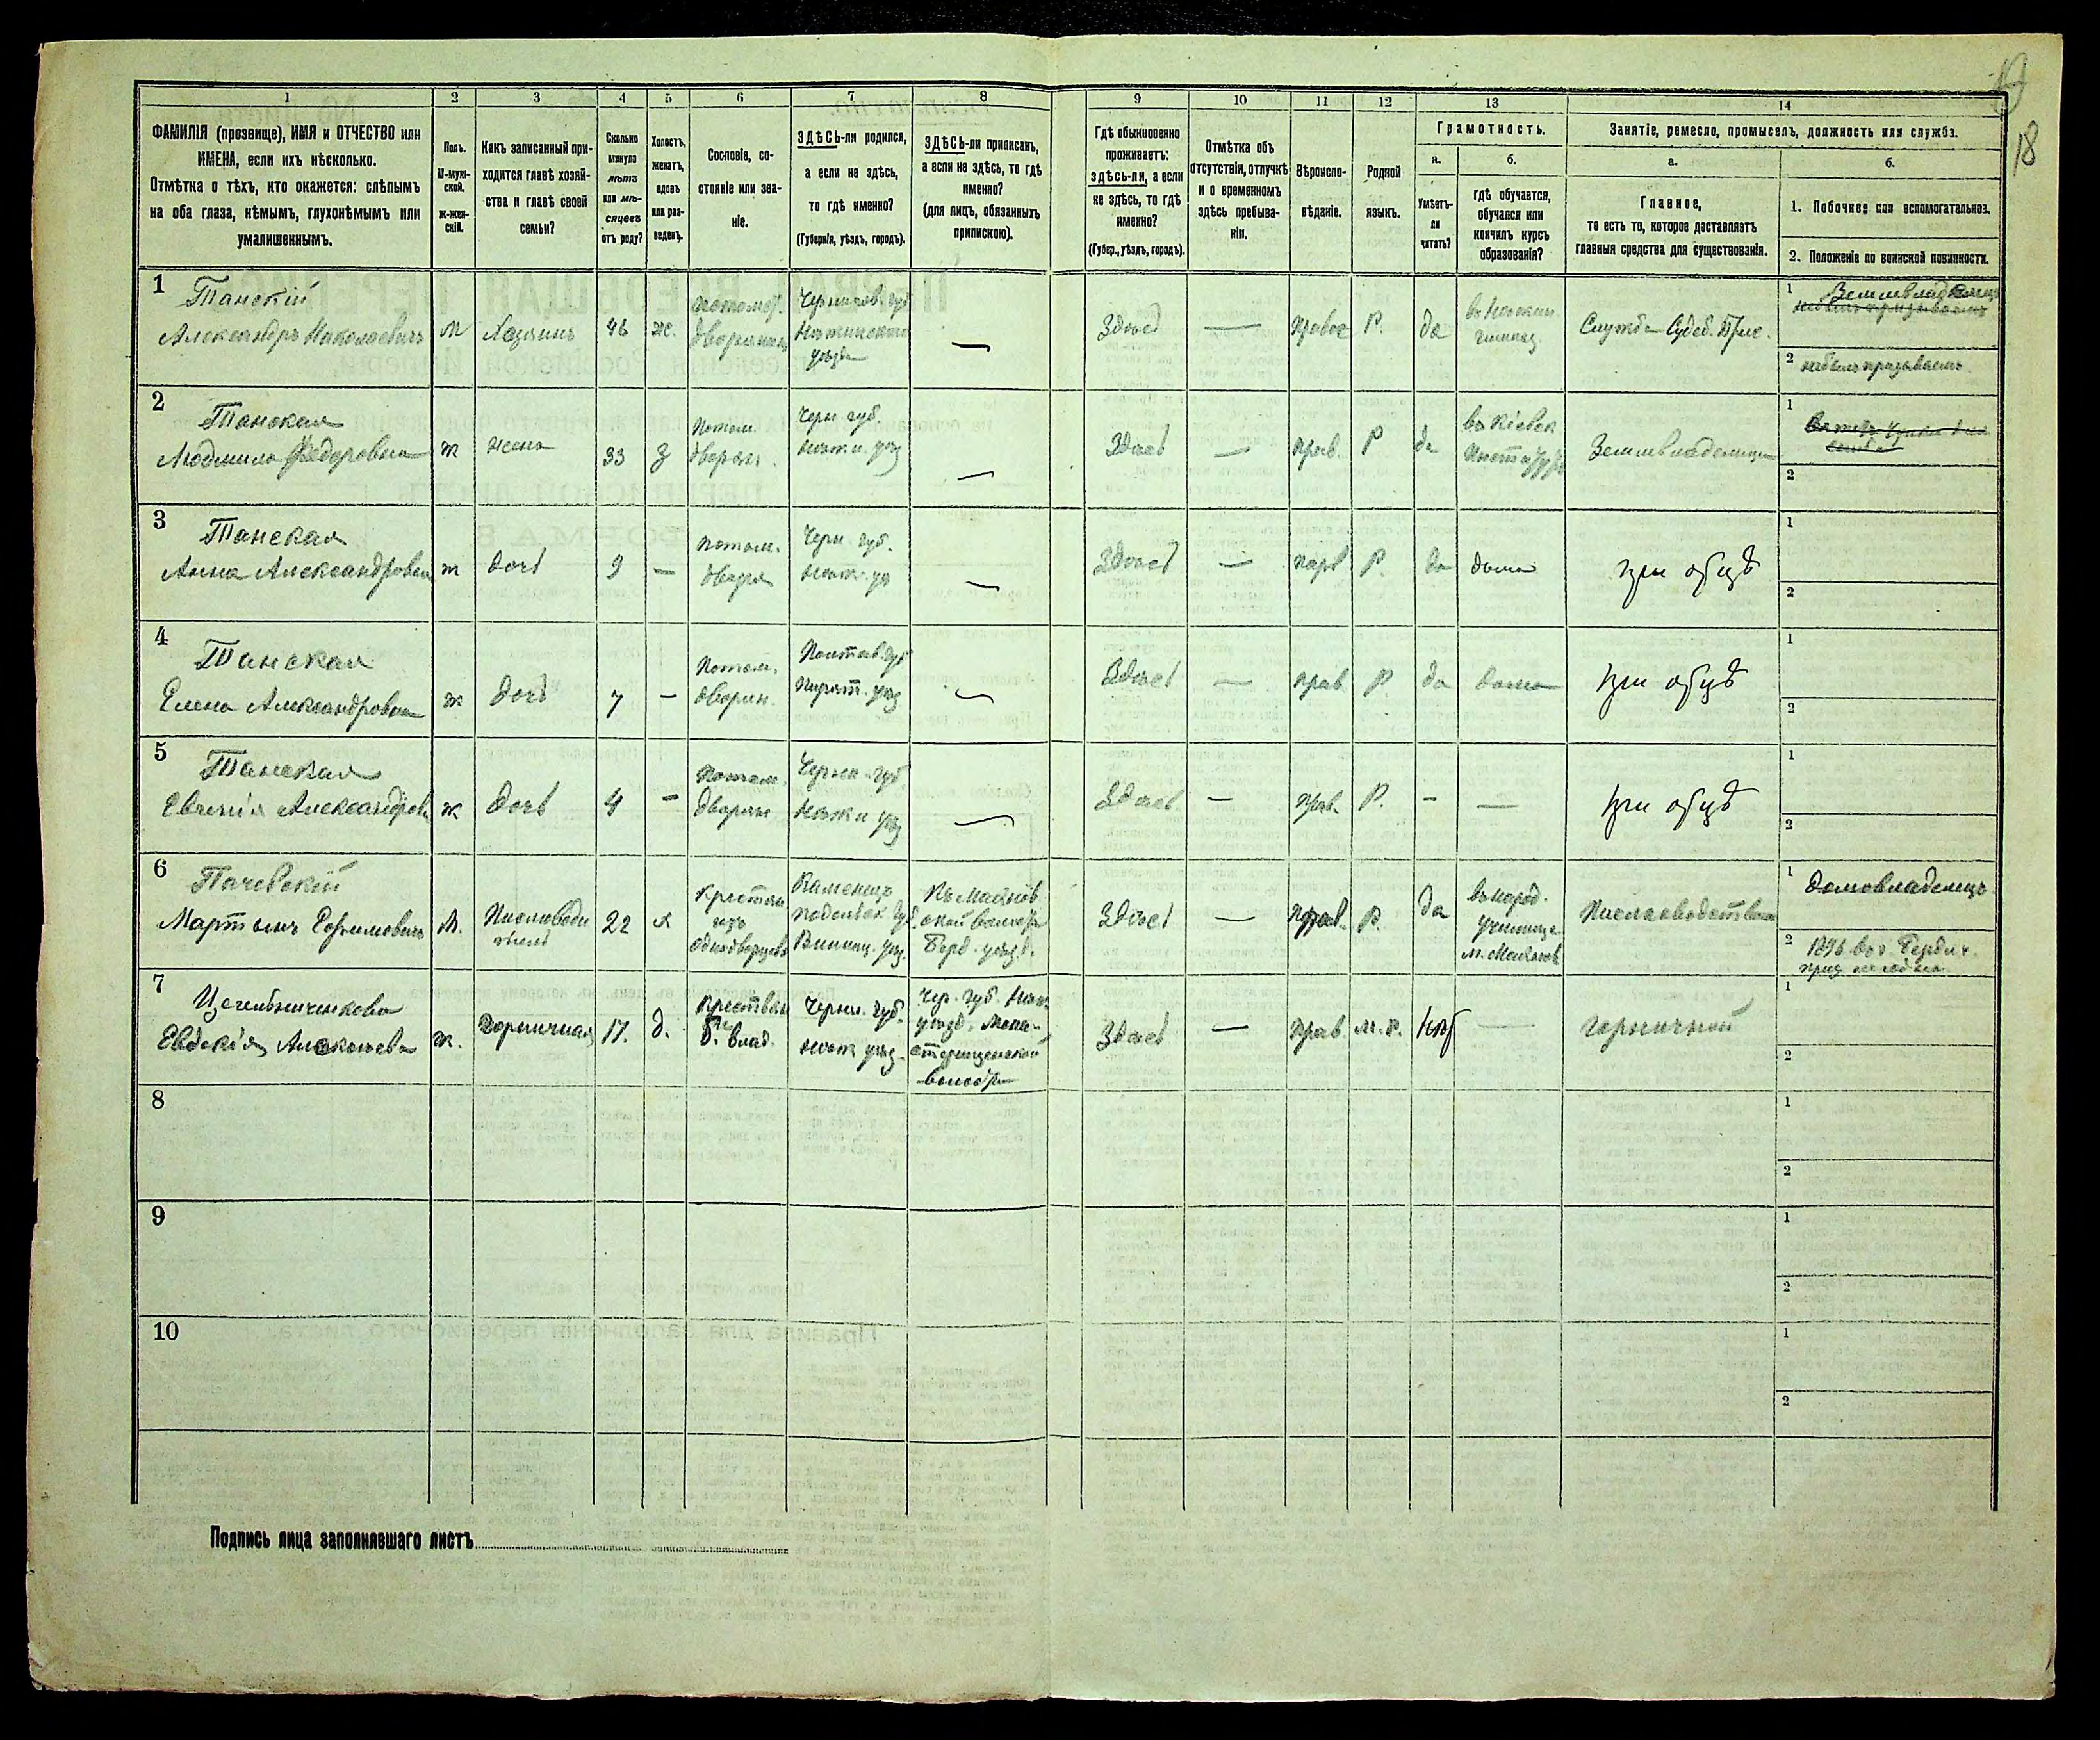 18
1 2 3 4 5 6 7 8 9 10 11 12 13 14
ФАМИЛІЯ (прозвище), ИМЯ и ОТЧЕСТВО или
ИМЕНА, если ихъ нѣсколько.
Отмѣтка о тѣхъ, кто окажется: слѣпымъ
на оба глаза, нѣмымъ, глухонѣмымъ или
умалишеннымъ.
Полъ.
М-муж-
ской.
ж-жен-
скій.
Какъ записанный при-
ходится главѣ хозяй-
ства и главѣ своей
семьи?
Сколько
минуло
лѣтъ
или мѣ-
сяцевъ
отъ роду?
Холостъ,
женатъ,
вдовъ
или раз-
веденъ.
Сословіе, со-
стояніе или зва-
ніе.
ЗДѢСЬ-ли родился,
а если не здѣсь,
то гдѣ именно?
(Губернія, уѣздъ, городъ).
ЗДѢСЬ-ли приписанъ,
а если не здѣсь, то гдѣ
именно?
(для лицъ, обязанныхъ
припискою).
Гдѣ обыкновенно
проживаетъ:
здѣсь-ли, а если
не здѣсь, то гдѣ
именно?
(Губер., уѣздъ, городъ).
Отмѣтка объ
отсутствіи, отлучкѣ
и о временномъ
здѣсь пребыва-
ніи.
Вѣроиспо-
вѣданіе.
Родной
языкъ.
Грамотность.
а.
Умѣетъ-
ли
читать?
б.
гдѣ обучается,
обучался или
кончилъ курсъ
образованія?
Занятіе, ремесло, промыселъ, должность или служба.
а.
Главное,
то есть то, которое доставляетъ
главныя средства для существованія.
б.
1. Побочное или вспомогательное.
2. Положеніе по воинской повинности.
1
Танскій
Александръ Николаевичъ
м
Хозяинъ
46
ж.
потомст.
дворянинъ
Чернигов. губ
Нѣжинскаго
уѣзда
—
Здѣсь
—
правос
Р.
да
въ Нѣжин.
гимназ
Служба Судеб.
1 Землевладѣлецъ
2 небылъ призываемъ
2
Танская
Людмила Федоровна
ж
жена
33
з
Потом.
дворян.
Черн губ.
Нѣжи. уѣз
—
Здѣсь
—
прав.
Р
да
въ Кіевск
Инстит
Землевладелица
1
2
3
Танская
Анна Александровна
ж
дочь
9
—
потом.
дворя
Черн. губ.
Нѣж. уѣ
—
Здѣсь
—
прав
Р.
да
дома
при отцѣ
1
2
4
Танская
Елена Александровна
ж
дочь
7
—
Потом.
дворян.
Полтав губ
Пирят. уѣз
—
Здѣсь
—
прав
Р.
да
дома
при отцѣ
1
2
5
Танская
Евгенія Александровн
ж
дочь
4
—
Потом.
дворян
Черниг. губ
Нѣжи уѣз
—
Здѣсь
—
прав.
Р.
—
—
при отцѣ
1
2
6
Пачевскій
Мартынъ Ефимовичъ
М.
Пчеловоди
тель
22
х
Крестьян
изъ
однодворцевъ
Каменецъ
подольск. губ.
Винниц. уѣз.
Къ Махнов
ской волости
Берд. уѣзд.
Здѣсь
—
прав.
Р.
Да
въ народ.
училище
м. Махнов
Пчеловодствомъ
1 Домовладелецъ
2 1896 в. г. Бердич.
7
Евдокія Алексѣева
ж.
Горничная
17.
д.
Крестьян
б. влад.
Черни. губ.
нѣж уѣз.
Чер. губ. Нѣж.
уѣзд. Мона-
стырищенской
волости
Здѣсь
—
прав.
м. р.
нѣт
—
горничной
1
2
8
1
2
9
1
2
10
1
2
Подпись лица заполнявшаго листъ